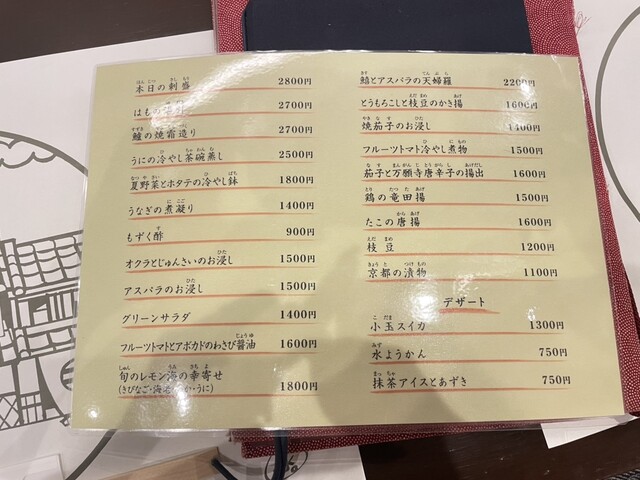 本日の刺盛 2800円
はもの 2700円
鱸の焼霜造り 2700円
うにの冷やし茶碗蒸し 2500円
夏野菜とホタテの冷やし鉢 1800円
うなぎの煮凝り 1400円
もずく酢 900円
オクラとじゅんさいのお浸し 1500円
アスパラのお浸し 1500円
グリーンサラダ 1400円
フルーツトマトとアボカドのわさび醤油 1600円
旬のレモン海の幸寄せ
(きびなご・海老・いか・うに) 1800円
鱚とアスパラの天婦羅 2200円
とうもろこしと枝豆のかき揚 1600円
焼茄子のお浸し 1400円
フルーツトマト冷やし煮物 1500円
茄子と万願寺唐辛子の揚出 1600円
鶏の竜田揚 1500円
たこの唐揚 1600円
枝豆 1200円
京都の漬物 1100円
デザート
小玉スイカ 1300円
水ようかん 750円
抹茶アイスとあずき 750円